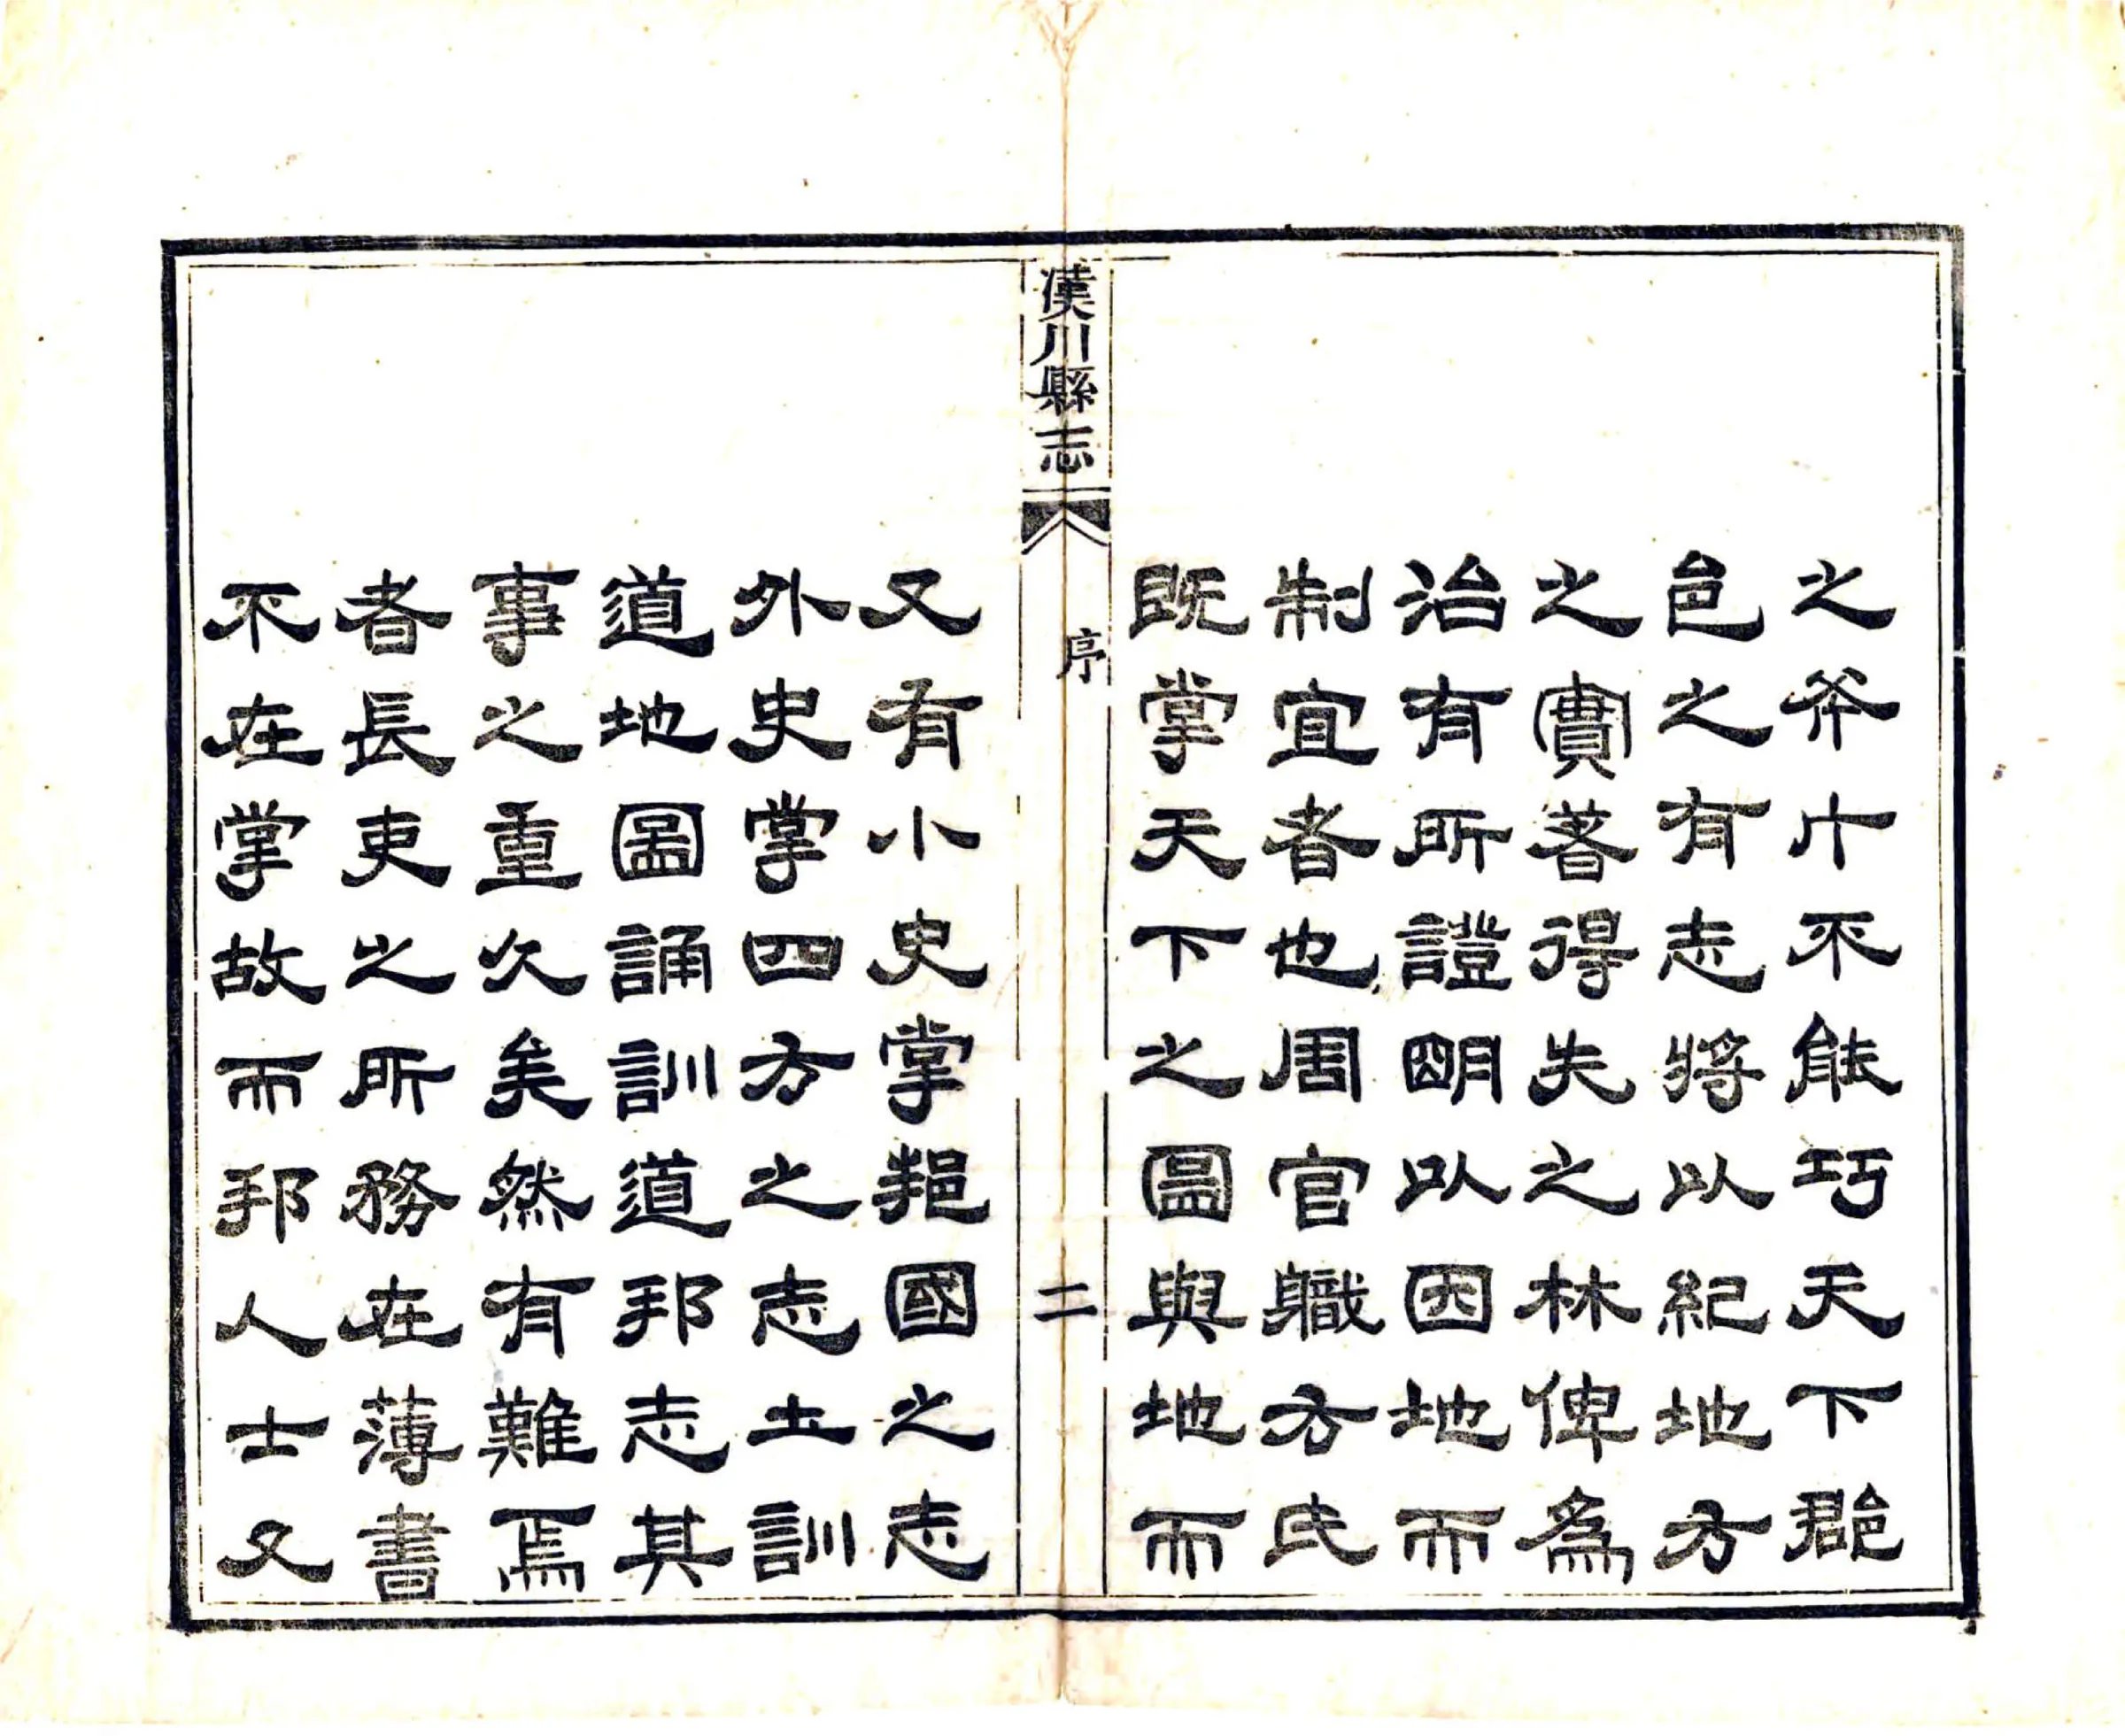 之斧斤不能巧天下郡
邑之有志將以紀地方
之實著得失之林俾為
治有所證明以因地而
制宜者也周官職方氏
既掌天下之圖與地而
漢川縣志
序
二
又有小史掌邦國之志
外史掌四方之志土訓
道地圖誦訓道邦志其
事之重久矣然有難焉
者長吏之所務在薄書
不在掌故而邦人士又